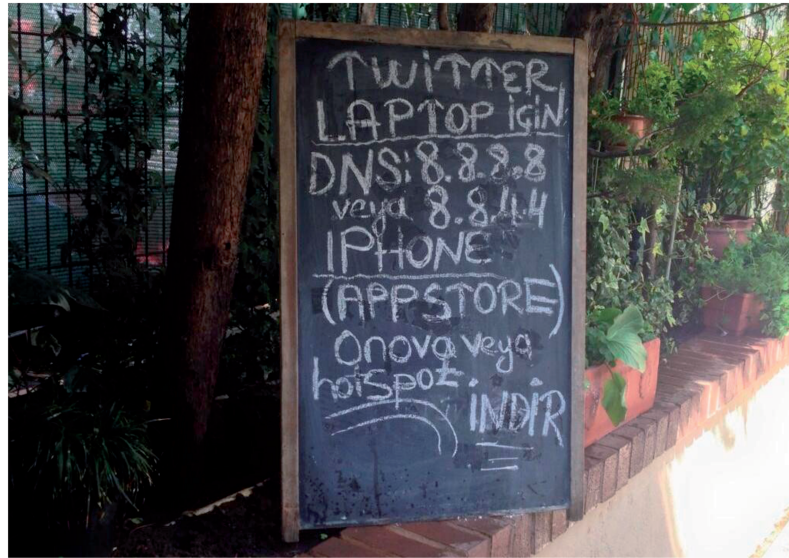 TWiTTER
LAPTOP iÇiN
DNS: 8.8.8.8
veya 8.8.4.4
IPHONE
(APPSTORE)
Onova veya
hotspot.
İNDİR